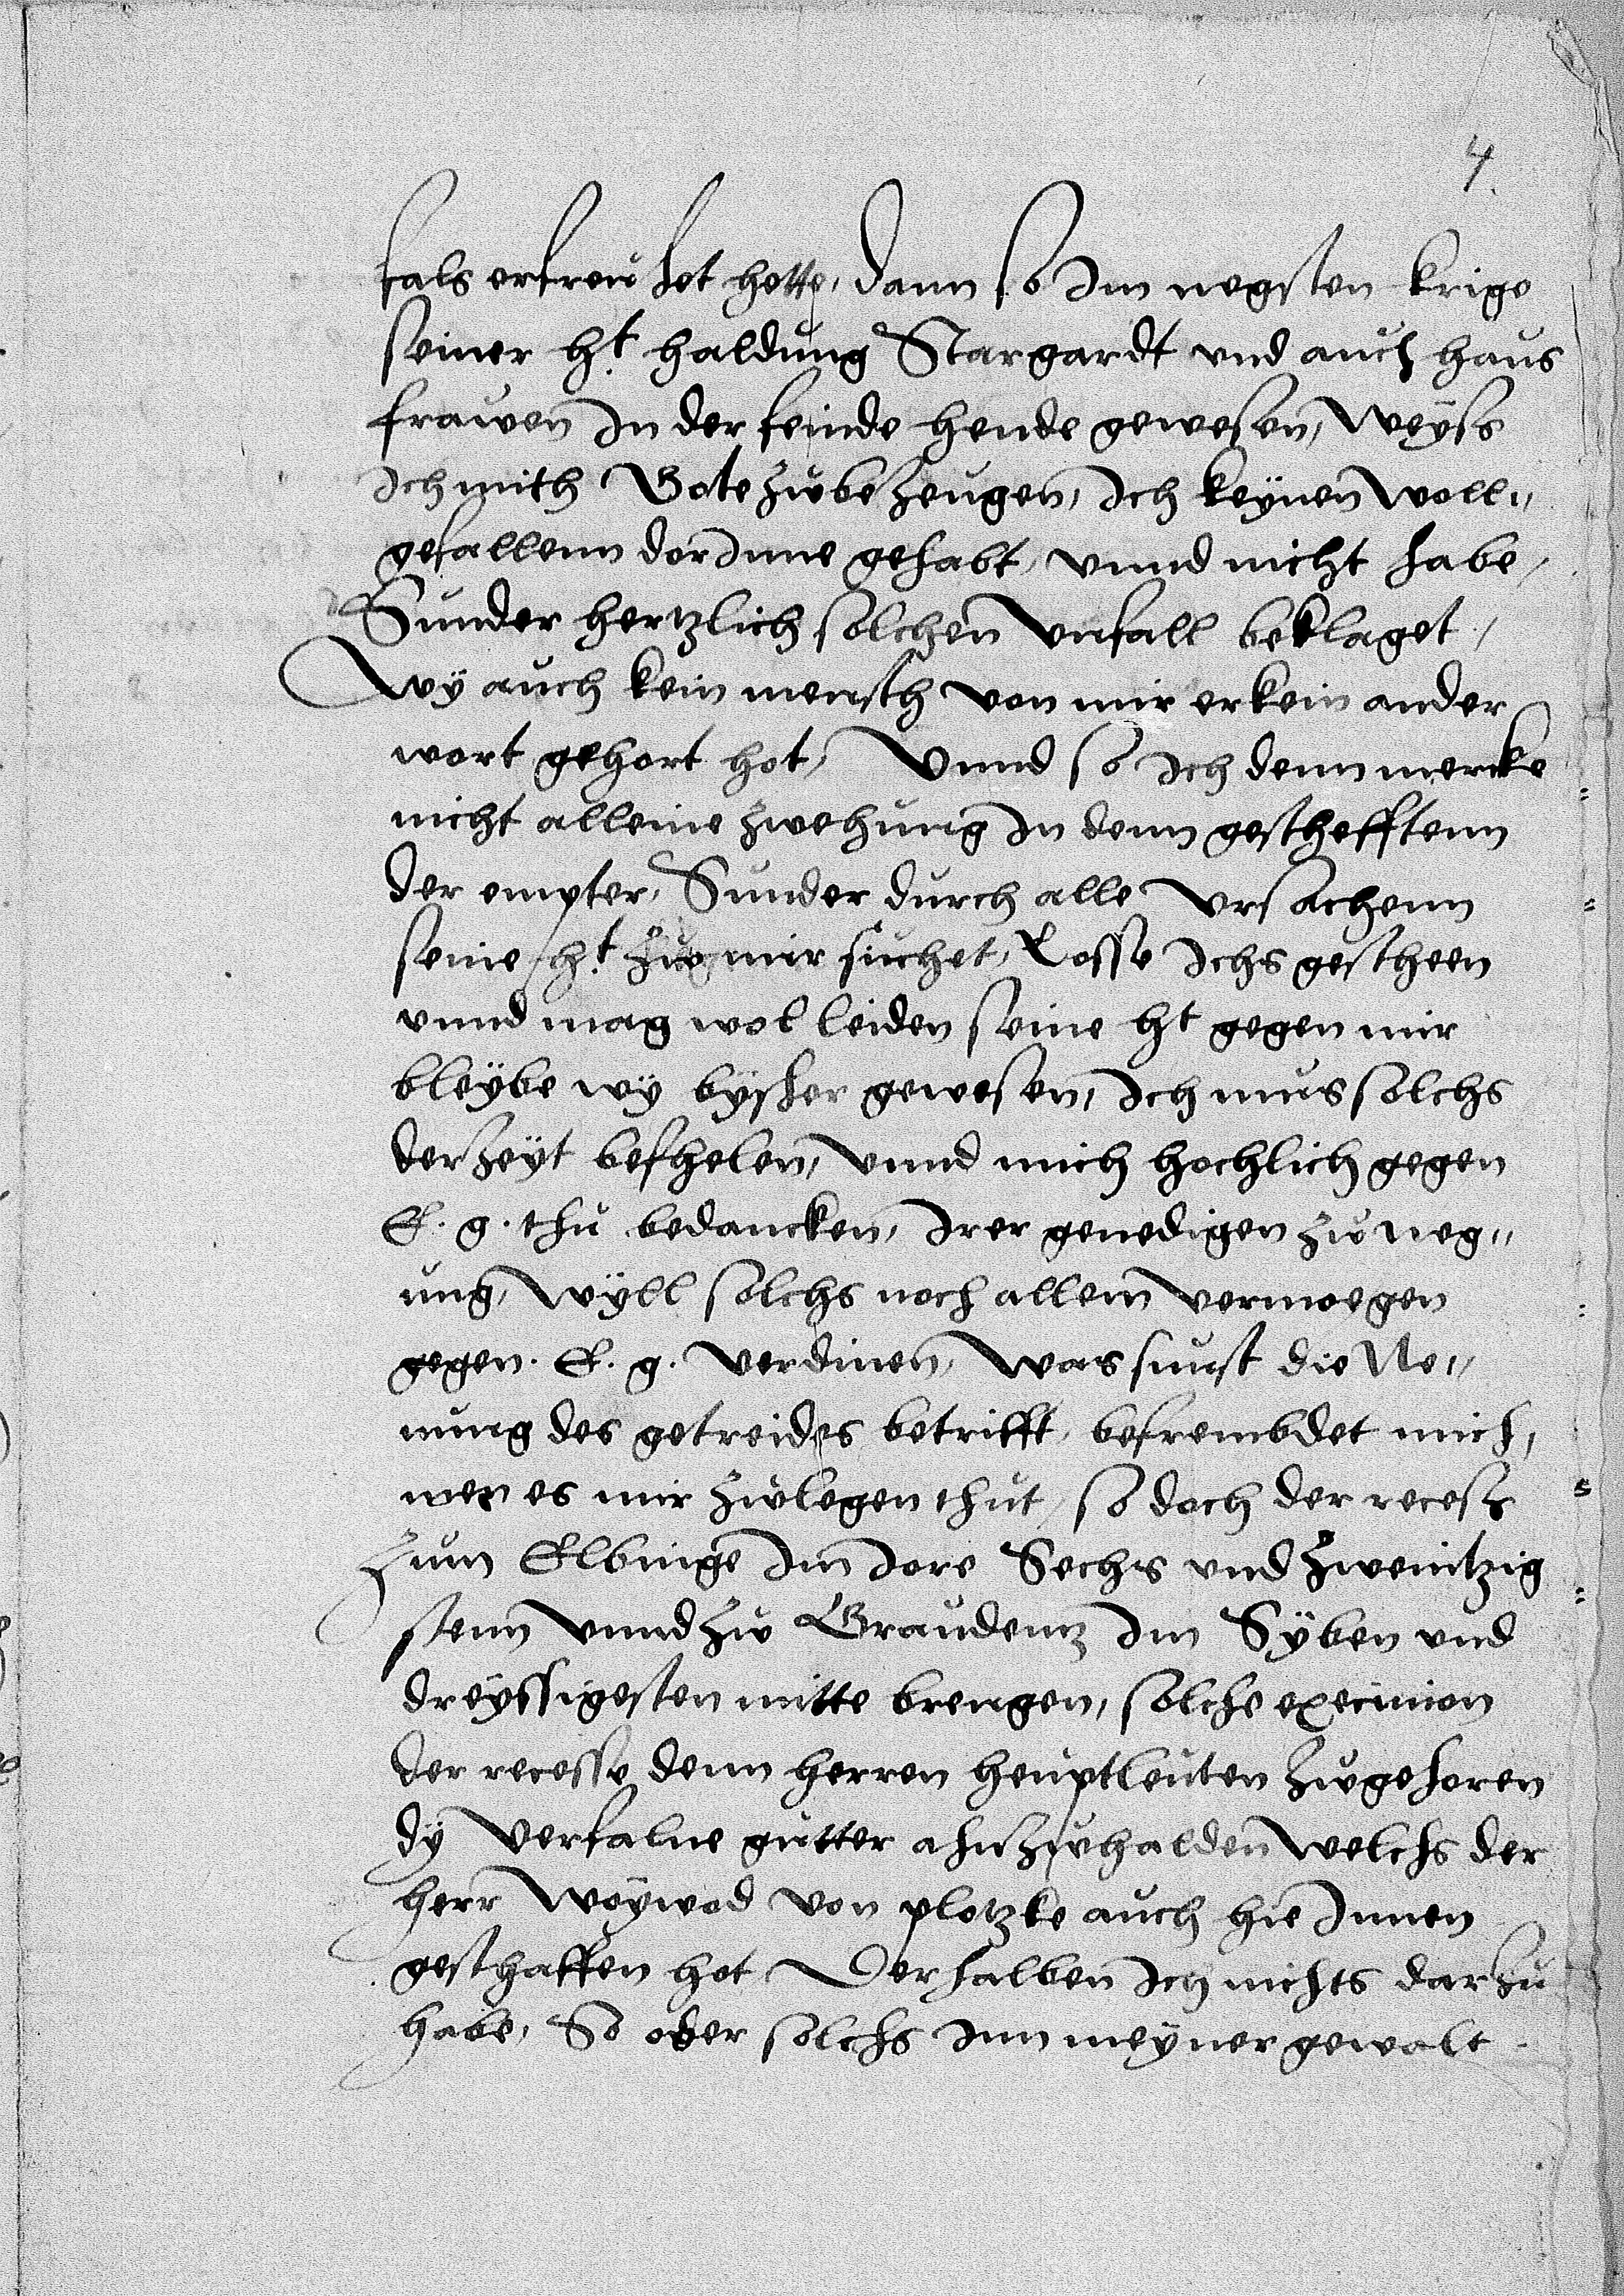 4.
fals erfreuhet hette, dann so Im negsten krige
seiner ht haldung Stargardt vnd auch haus
frawen In der feinde hende gewesen, Weyss
Ich mith Gote zubezeugen, Ich keynen woll„
gefallenn dor Inne gehabt, vnnd nicht habe,
Sunder hertzlich solchen vnfall beklaget,
wy auch kein mensch von mir erkein ander
wort gehort hot, Vnnd so Ich denn mercke
nicht alleine zwehung In denn geschefftenn
der empter, Sunder durch alle vrsachenn
seine ht zu mir suchet, Losse Ichs gescheen
vnnd mag wol leiden seine ht gegen mir
bleybe wy bysher gewesen, Ich mus solchs
der zeyt befhelen, Vnnd mich hochlich gegen
E. g. thu bedancken, Irer genedigen zuneg„
ung, Wyll solchs noch allem vermoegen
gegen. E. g. verdinen, Was sunst die Ne„
mung des getreides betrifft, befrembdet mich,
wer es mir zulegen thut, so doch der recess
zum Elbinge Im Jore Sechs vnd zwentzig
stenn vnnd zu Graudentz Im Syben vnd
dreyssigesten mitte brengen, solche execucion
der recesse denn herren heuptleuten zugehoren
dy verfalne gutter ahnzuhalden welchs der
herr woywod von plotzke auch hie Innen
geschaffen hot Derhalben Ich nichts darzu
habe, So ober solchs Inn meyner gewalt